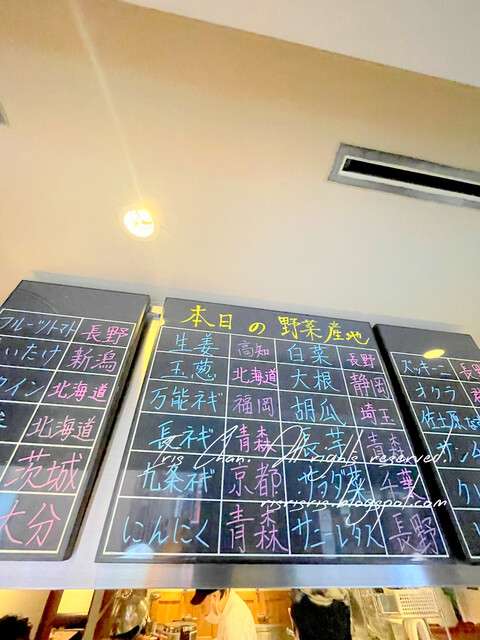 本日の野菜産地
フルーツトマト 長野
いたけ 新潟
イン 北海道
北海道
茨城
大分
生姜 高知 白菜 長野
玉葱 北海道 大根 静岡
万能ネギ 福岡 胡瓜 埼玉
長ネギ 青森 青森
九条ネギ 京都 サラダ菜 千葉
にんにく 青森 サニーレタス 長野
ズッキーニ 長
オクラ
佐土原
Iris Chan. All rights reserved.
irisriris.blogspot.com